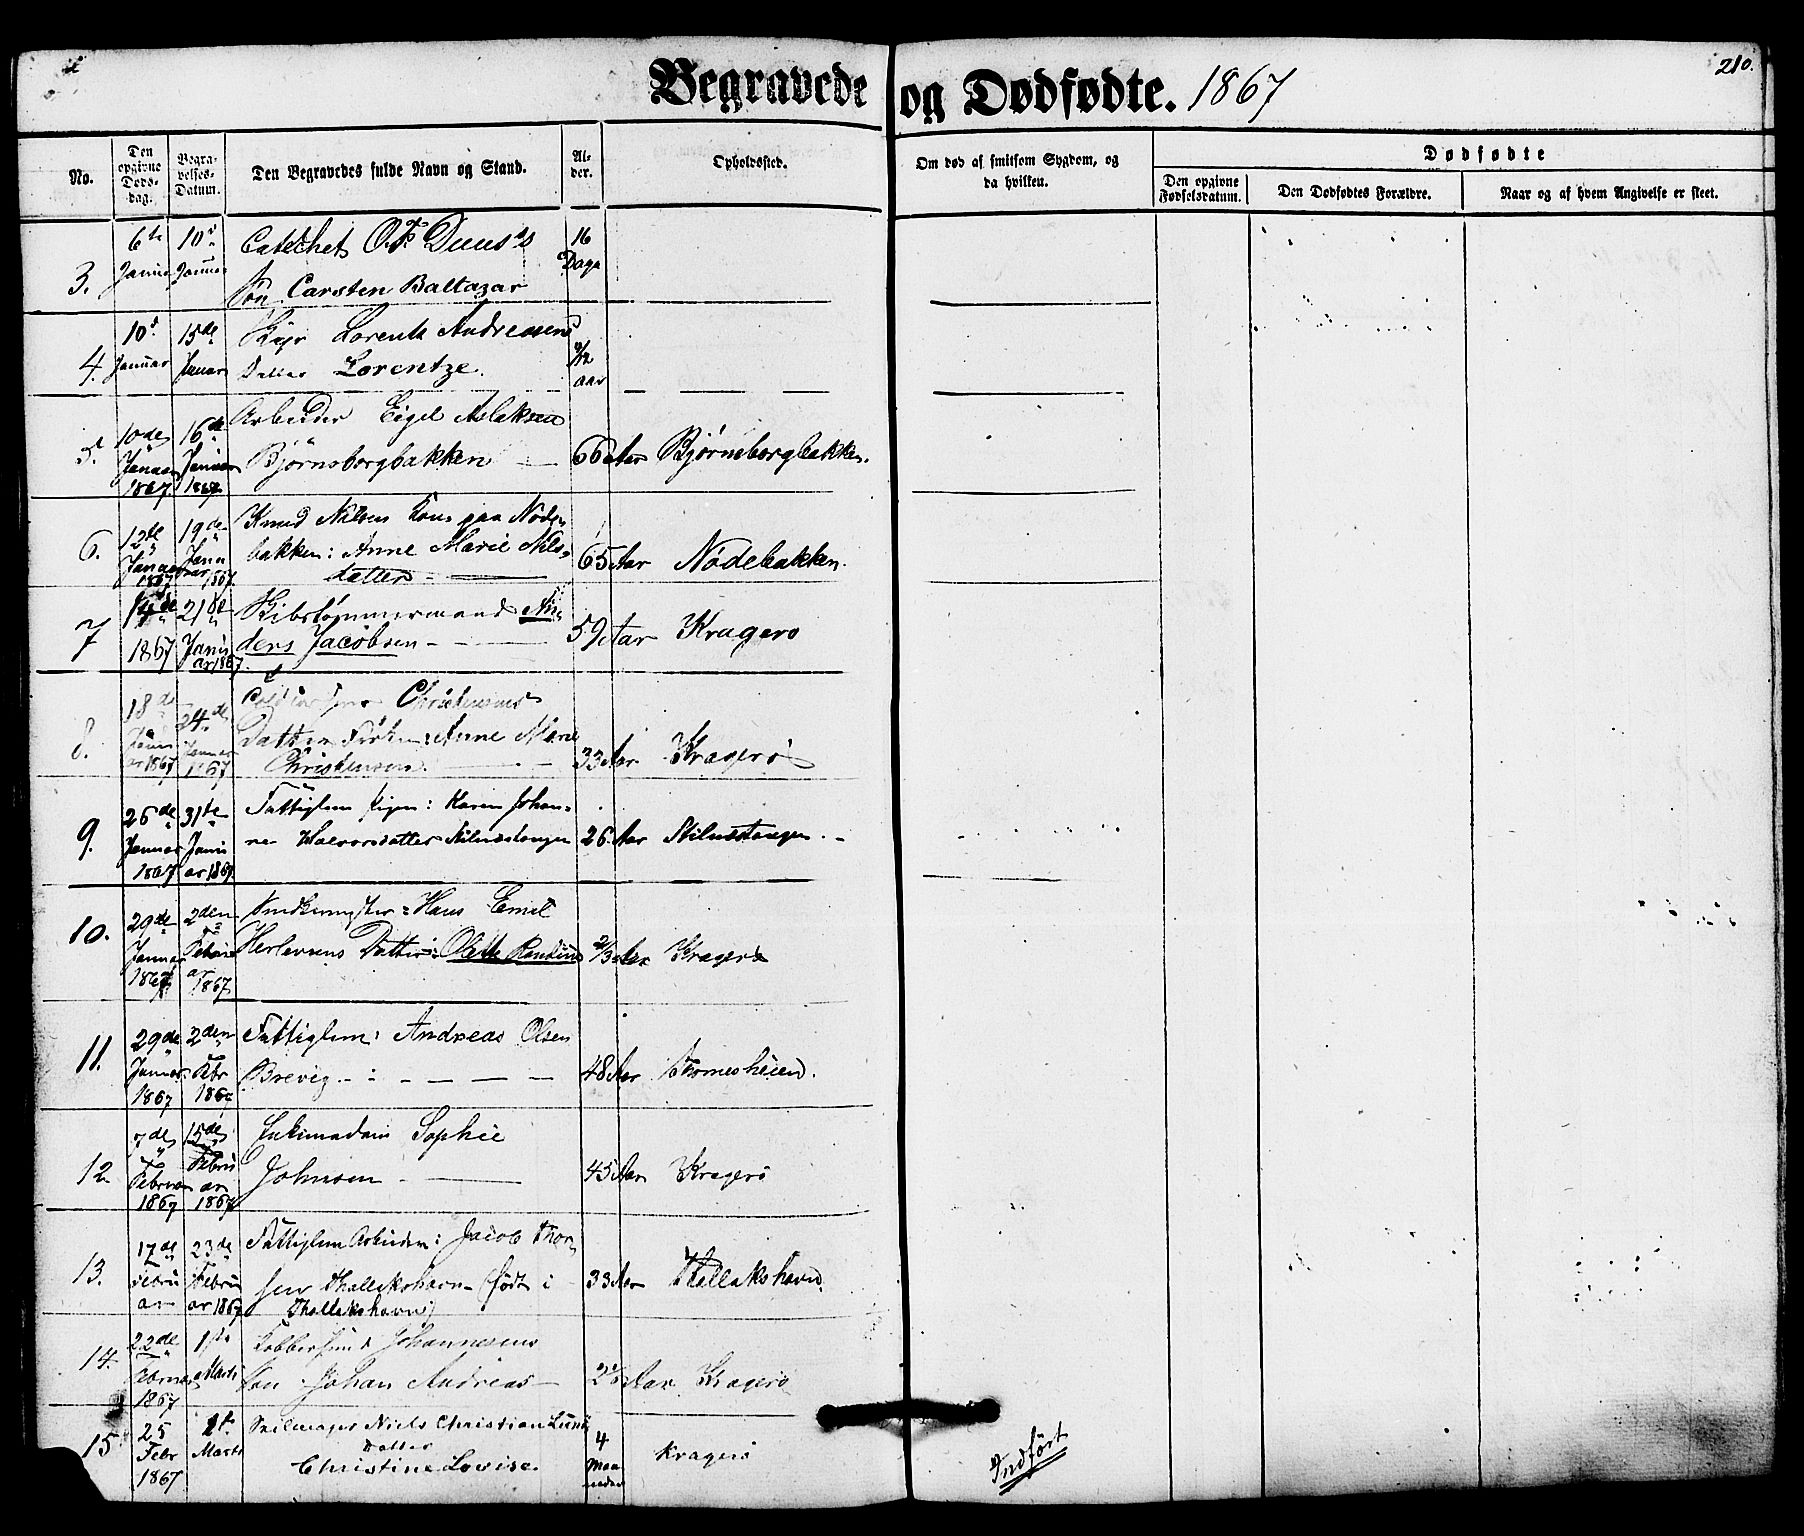 Begravede og Dødfødte. 1867
210.
No.
Den opgivne Døds-dag.
Begra-velses-Datum.
Den Begravedes fulde Navn og Stand.
Al-der.
Opholdssted.
Om død af smitsom Sygdom, og da hvilken.
Dødfødte
Den opgivne Fødselsdatum.
Den Dødfødtes Forældre.
Naar og af hvem Angivelse er skeet.
3. 6te Januar 10d Januar Catechet O. Duus's 16 Dage
Søn Carsten Baltazar
4. 10d Januar 15de Januar Lorents Andreasens
Datter Lorentze. aar
5. 10de Januar 1867 16de Januar 1867 Arbeider Eigel Aslaksen
Bjørnsborgbakken — 66 Aar Bjørneborgbakken.
6. 12te Januar 1867 19de Januar 1867 Knud Nilsens Kone paa Nøde-
bakken: Anne Marie Nils- 65 Aar Nødebakken.
datter —
7 1867 21de Januar 1867 Skibstømmermand An-
ders Jacobsen — 59 Aar Kragerø
8. 18de Januar 1867 24de Januar 1867 Christensens
Datter Frøken: Anne Marie
Christensen. — 33 Aar Kragerø
9. 26de Januar 1867 31te Januar 1867 Fattiglem Pigen: Karen Johan-
ne Halvorsdatter Stilnestangen 26 Aar Stilnestangen. -
10. 29de Januar 1867 2den Februar 1867 Hans Emil
Herlevsens Datter: Olette 2/3 Aar Kragerø
11. 29de Januar 1867 2den Febr 1867 Fattiglem: Andreas Olsen
Brevig — 48 Aar
12. 7de Februar 1867 15de Februar 1867 Enkemadam Sophie
Johnsen — 45 Aar Kragerø
13. 17de Februar 23de Februar 1867 Fattiglem Arbeider: Jacob Thor-
sen Thallakshavn (født i 33 Aar Thallakshavn.
Thallakshavn)
14. 22de Februar 1867 1ste Marts Kobbersmed Johannesens
Søn Johan Andreas — Aar Kragerø
15 25 Febr 1867 1st. Marts Seilmager Niels Christian Lunds 4 Maaneder Kragerø
Datter
Christine Lovise.
Indført